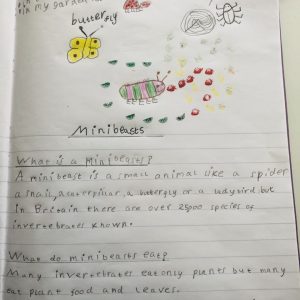 in my garden
butterfly
Minibeasts
What is a Minibeasts?
A minibeast is a small animal like a spider
a snail, a caterpillar, a butterfly or a ladybird but
in Britain there are over 25000 species of
invertebrates known.
What do minibeasts eat?
Many invertebrates eat only plants but many
eat plant food and leaves.